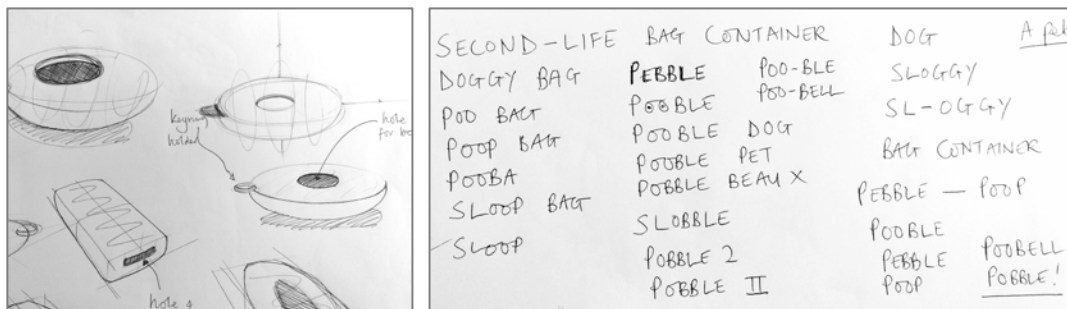 keyring
holder
hole
for
hole
SECOND-LIFE BAG CONTAINER
DOGGY BAG
POO BAG
POOP BAG
POOBA
SLOOP BAG
SLOOP
PEBBLE
POOBLE
POO-BLE
POO-BELL
POOBLE DOG
POOBLE PET
POBBLE BEAU X
SLOBBLE
POBBLE 2
POBBLE II
DOG
SLOGGY
SL-OGGY
BAG CONTAINER
PEBBLE — POOP
POOBLE
PEBBLE
POOP
POOBELL
POBBLE!
A